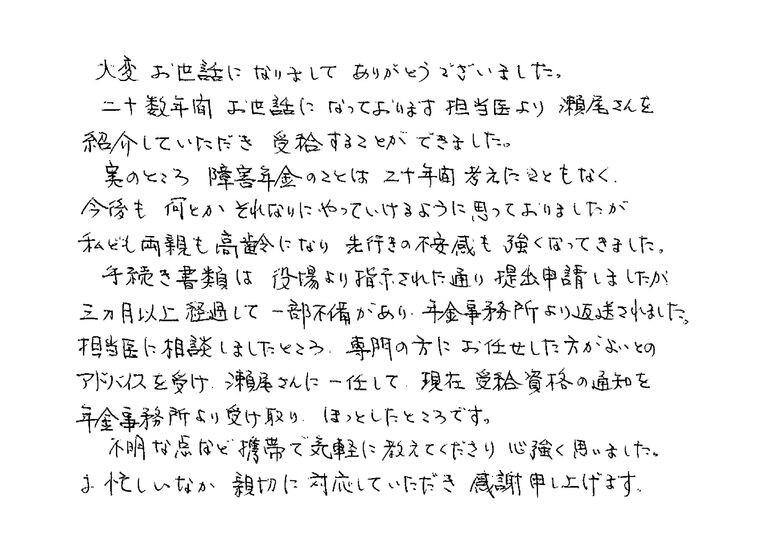 大変 お世話に なりまして ありがとうございました。
二十数年間 お世話に なっております 担当医より 瀬尾さんを
紹介していただき 受給することが できました。
実のところ 障害年金のことは 二十年間 考えたこともなく、
今後も 何とか それなりにやっていけるように思っておりましたが
私ども両親も 高齢になり 先行きの不安感も 強くなってきました。
手続き書類は 役場より指示された通り 提出申請しましたが
三カ月以上 経過して 一部不備があり、年金事務所より返送されました。
担当医に相談しましたところ、専門の方に お任せした方がよいとの
アドバイスを受け、瀬尾さんに 一任して、現在 受給資格の通知を
年金事務所より受け取り、ほっとしたところです。
不明な点など 携帯で気軽に 教えてくださり 心強く思いました。
お忙しいなか 親切に 対応していただき 感謝申し上げます。